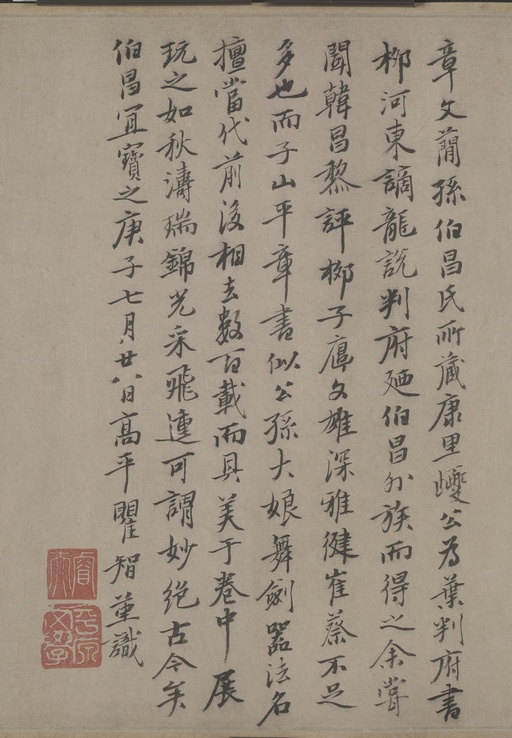 章文簡孫伯昌氏所藏康里巙公為葉判府書
柳河東謫龍說判府廼伯昌外族而得之余嘗
聞韓昌黎評柳子厚文雄深雅健崔蔡不足
多也而子山平章書似公孫大娘舞劒器法名
擅當代前後相去數百載而具美于卷中展
玩之如秋濤瑞錦光采飛連可謂妙絕古今矣
伯昌宜寶之庚子七月廿八日高平瞿智堇識